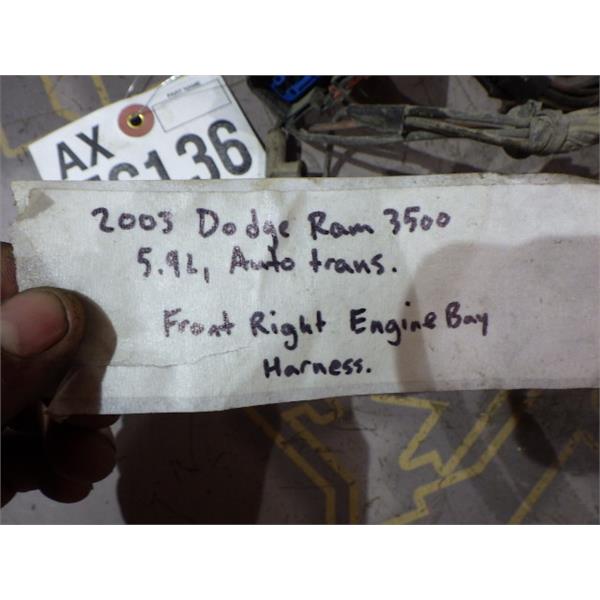 PART NAME
AX
136
2003 Dodge Ram 3500
5.9L, Auto trans.
Front Right Engine Bay
Harness.